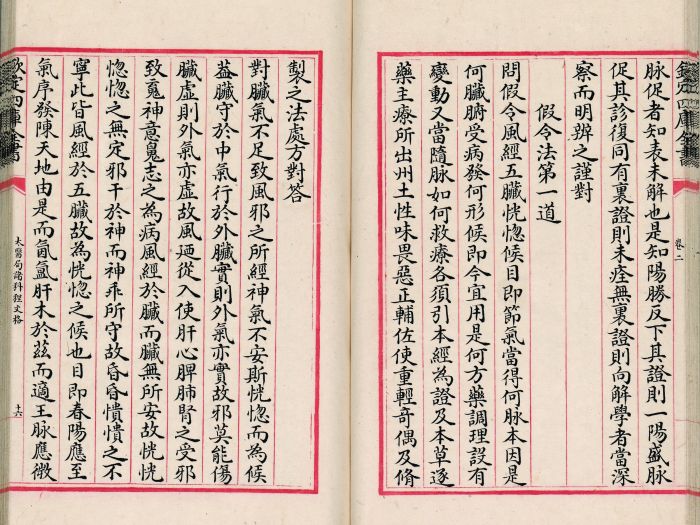 脉促者知表未解也是知陽勝反下其證則一陽盛脉
促其診復同有裏證則未痊無裏證則向解學者當深
察而明辨之謹對
假令法第一道
問假令風經五臓恍惚候目即節氣當得何脉本因是
何臓腑受病發何形候即今宜用是何方藥調理設有
變動又當隨脉如何救療各須引本經為證及本草逐
藥主療所出州土性味畏惡正輔佐使重輕奇偶及脩
卷二
製之法處方對答
對臓氣不足致風邪之所經神氣不安斯恍惚而為候
葢臓守於中氣行於外臓實則外氣亦實故邪莫能傷
臓虚則外氣亦虚故風廼從入使肝心脾肺腎之受邪
致䰟神意䰟志之為病風經於臓而臓無所安故恍恍
惚惚之無定邪干於神而神乖所守故昏昏憒憒之不
寧此皆風經於五臓故為恍惚之候也目即春陽應至
氣序發陳天地由是而氤氲肝木於茲而適王脉應微
欽定四庫全書
太醫局諸科程文格
十六